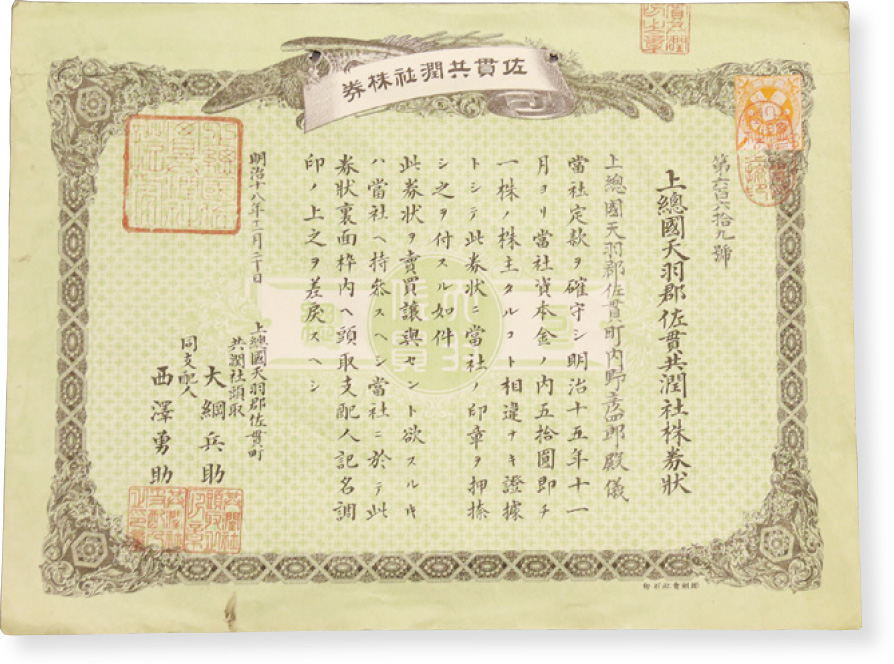 佐貫共潤社株券
第六百六拾九號
上總國天羽郡佐貫共潤社株券狀
上總國天羽郡佐貫町内野彦四郎殿儀
當社定款ヲ確守シ明治十五年十一
月ヨリ當社資本金ノ内五拾圓即チ
一株ノ株主タルコト相違ナキ證據
トシテ此券狀ニ當社ノ印章ヲ押捺
シ之ヲ付スル如件
此券狀ヲ賣買讓與セント欲スルキ
ハ當社ヘ持參スヘシ當社ニ於テ此
券狀裏面枠内ヘ頭取支配人記名調
印ノ上之ヲ差戻スヘシ
明治十八年十二月二十日
上總國天羽郡佐貫町
共潤社頭取
大綱兵助
同支配人
西澤勇助